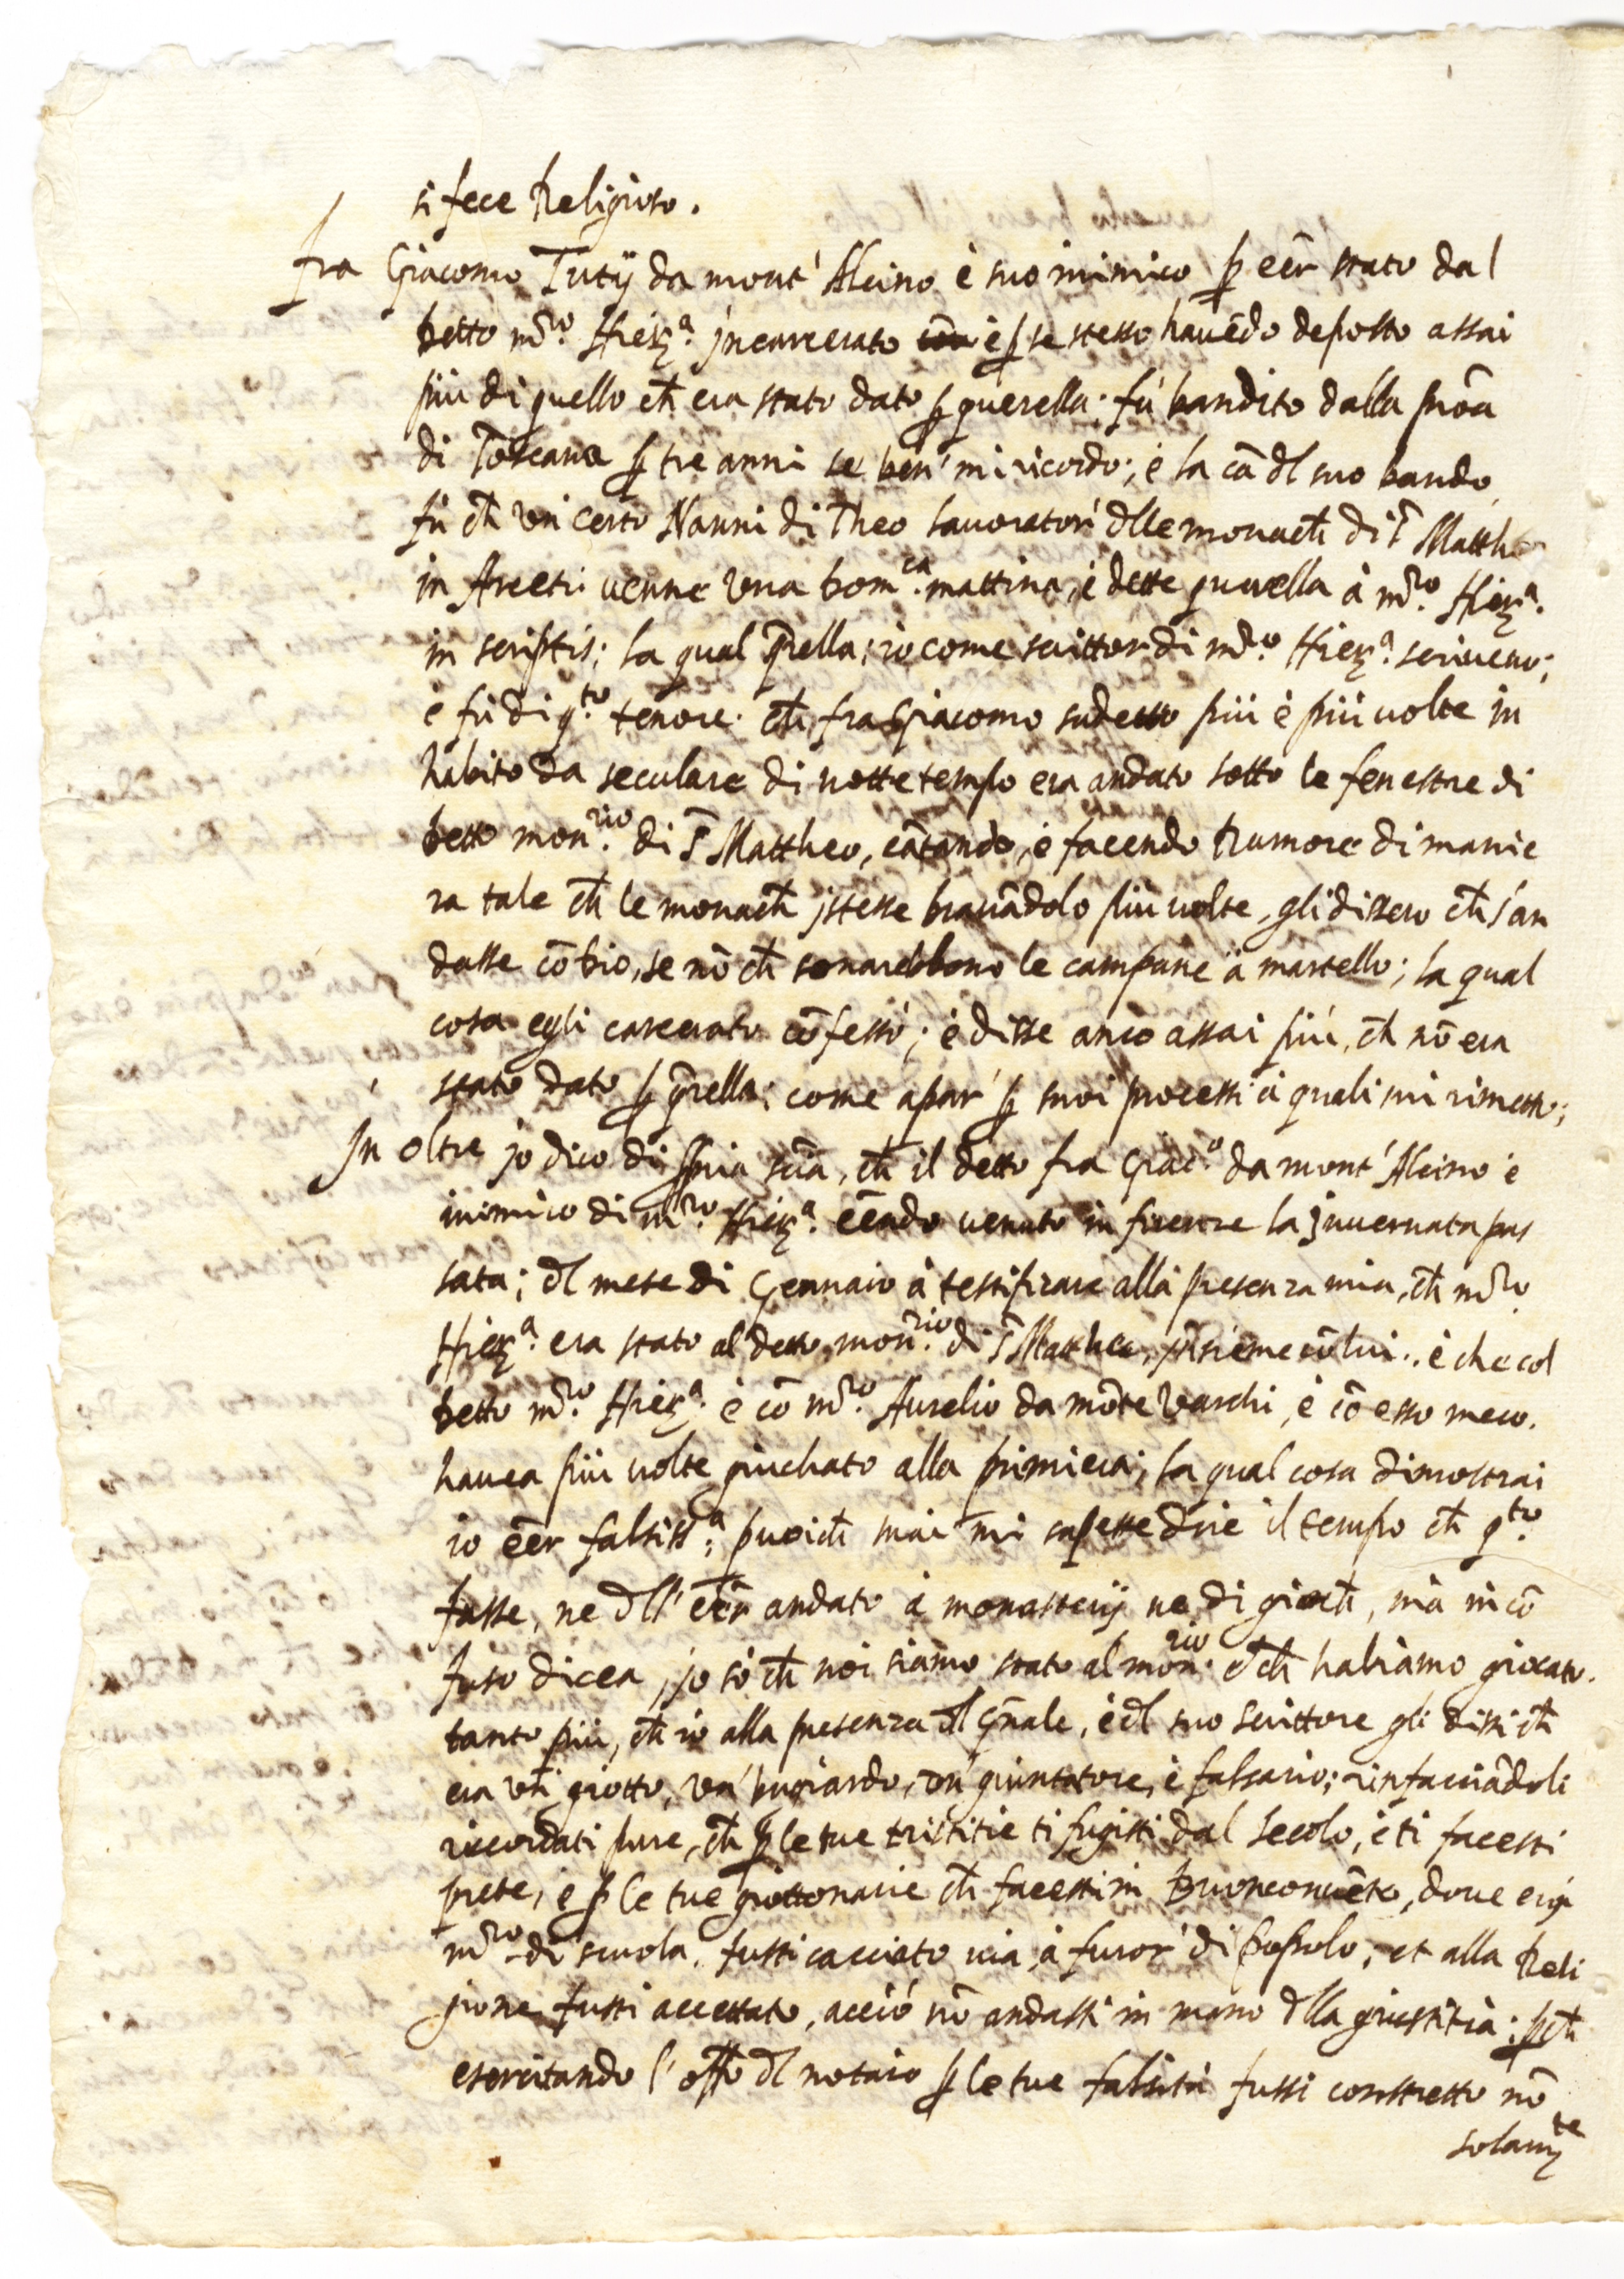 si fece Religioso.
fra Giacomo Tutij da mont' Alcino è suo inimico ꝑ eēr stato dal
detto m̄ro. Hierᵃ. incarcerato è ꝑ se stesso havēdo deposto assai
più di quello ch̄ era stato dato ꝑ querella: fù bandito dalla proā
di Toscana ꝑ tre anni se ben' mi ricordo; è la cā dl suo bando
fù ch̄ un certo Nanni di Theo lavorator' dlle monach̄ di S̄
in Arcetri venne una Domᶜᵃ. mattina, è dette querella à m̄ro. Hierᵃ.
in scriptis; la qual q̄rella; io come scrittor di m̄ro. Hierᵃ. scriveuo;
è fù di qᵗᵒ. tenore. ch̄ fra Giacomo sudetto più è più volte in
habito da seculare di notte tempo era andato sotto le fenestre di
detto monʳⁱᵒ. di S̄ Mattheo, cātando, è facendo Rumore di manie
ra tale ch̄ le monach̄ istesse bravādolo più volte, gli dissero ch̄ s'an
dasse cō Dio, se nō ch̄ sonarebbono le campane à martello; la qual
cosa egli carcerato cōfessò; è disse anco assai più, ch̄ nō era
stato dato ꝑ q̄rella; come apar' ꝑ suoi processi à quali mi rimetto;
In oltre io dico di ꝓpria sciā, ch̄ il detto fra Giacᵒ. da mont' Alcino è
inimico di m̄ro. Hierᵃ. eēndo venuto in firenze la invernata pas
sata; dl mese di Gennaio à testificare alla presenza mia, ch̄ m̄ro.
Hierᵃ. era stato al detto monʳⁱᵒ. di S̄ Mattheo, insieme cō lui.. è che col
detto m̄ro. Hierᵃ. è cō m̄ro. Aurelio da mōte Varchi, è cō esso meco.
havea più volte giuchato alla primiera; la qual cosa dimostrai
io eēr falsissᵃ; puoich̄ mai mi sapette dire il tempo ch̄ qᵗᵒ.
fusse, ne dll' eēr andato à monasterij ne di gioch̄, mà in cō
fuso dicea, io sò ch̄ noi siamo stato al monʳⁱᵒ. è ch̄ habiamo giocato.
tanto più, ch̄ io alla presenza dl gn̄ale, è dl suo scrittore gli dissi ch̄
era un' giotto, un' busiardo, un' giuntatore, è falsario; rinfacciādoli
riccordati pure, ch̄ ꝑ le tue tristitie ti fugisti dal secolo, è ti facesti
prete, è ꝑ le tue giottonarie ch̄ facesti in Buonconvēto, dove eri
m̄ro. di scuola, fusti cacciato via à furor' di popolo, et alla Reli
gione fusti accettato, acciò nō andassi in mano dlla giustitia; ꝑch̄
esercitando l' offo dl notaio ꝑ le tue falsità fussi constretto nō
solamᵗᵉ